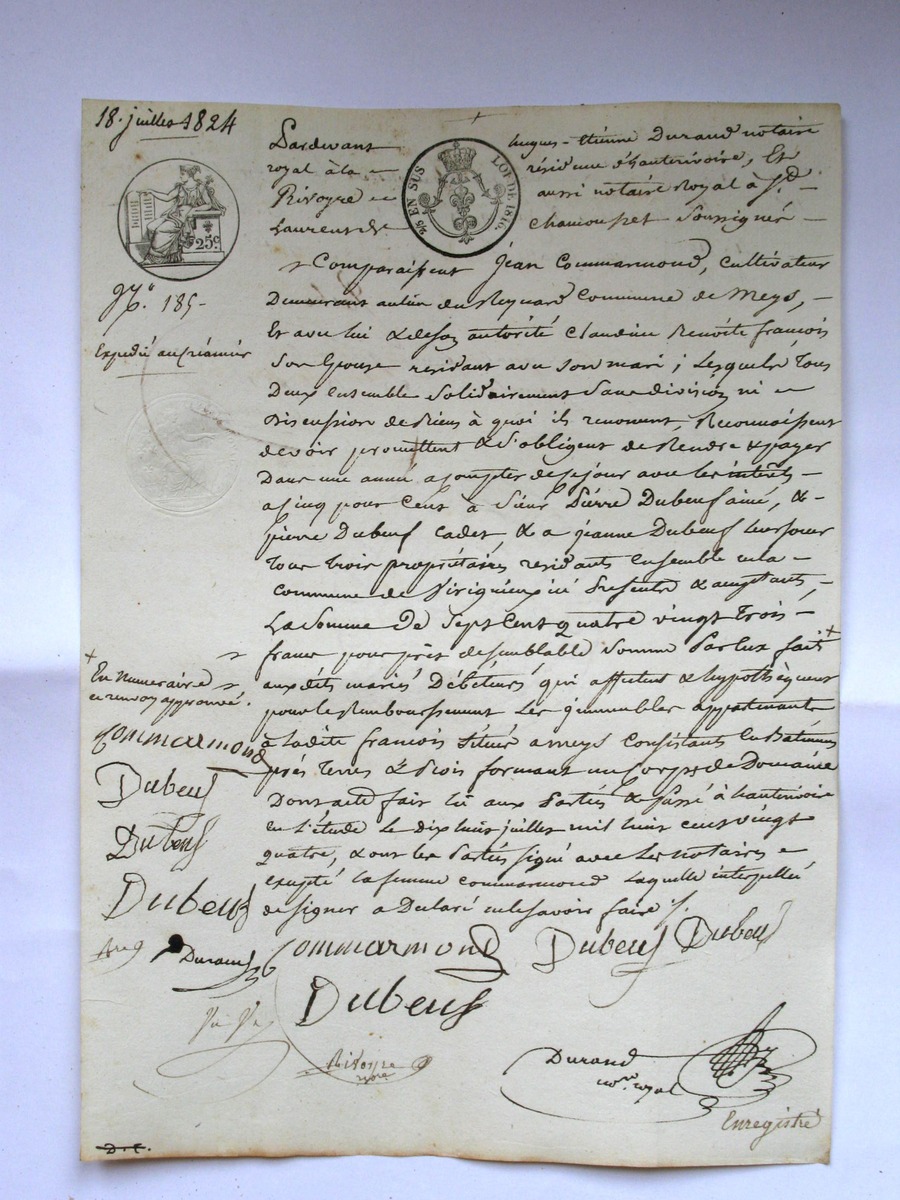 18. juillet 1824
Pardevant hugues-étienne Durand notaire
royal à la résidence d'hauterivoire, Et
Rivoyre aussi notaire Royal à St.
Laurent de Chamousset Soussignés
25 EN SUS
LOI DE 1816
25c.
No. 185
Expedié au créancier
Comparaissent Jean Commarmond, cultivateur
Demeurant au lieu du Reynard Commune de Meys,
Et avec lui & de son autorité Claudine Benoite francois
Son Epouse résidant avec son mari ; Lesquels Tous
Deux ensemble Solidairement Sans division ni
Discussion de biens à quoi ils renoncent, Reconnaissent
devoir promettent & S'obligent de Rendre & payer
Dans une année a compter de ce jour avec les intérêts
a cinq pour Cent à Sieur Pierre Dubeuf ainé, &
pierre Dubeuf cadet & a jeanne Dubeuf leur soeur
tous trois propriétaires résidants Ensemble en la
Commune de Virigneux ici présents & acceptants,
La Somme De Sept Cent quatre vingt Trois
francs pour prêt de semblable Somme Par eux fait +
aux dits mariés Débiteurs qui affectent & hypothèquent
pour le Remboursement Les immeubles appartenants
à Ladite francois Situés a meys Consistants En Batiments
prés Terres & Bois formant un Corps de Domaine
Dont acte fait lu aux Parties & Passé à hauterivoire
en l'étude le dix huit juillet mil huit cent vingt
quatre, & ont les Parties signé avec les notaires
excepté la femme commarmond Laquelle interpellée
de signer a Déclaré ne le savoir faire
+
En Numeraire
ce renvoi approuvé.
Commarmond
Dubeuf
Dubeuf
Dubeuf
Durand
Commarmond
Dubeuf Dubeuf
Dubeuf
Rivoyre
nre
Durand
nore. royal
Enregistré
D.C.